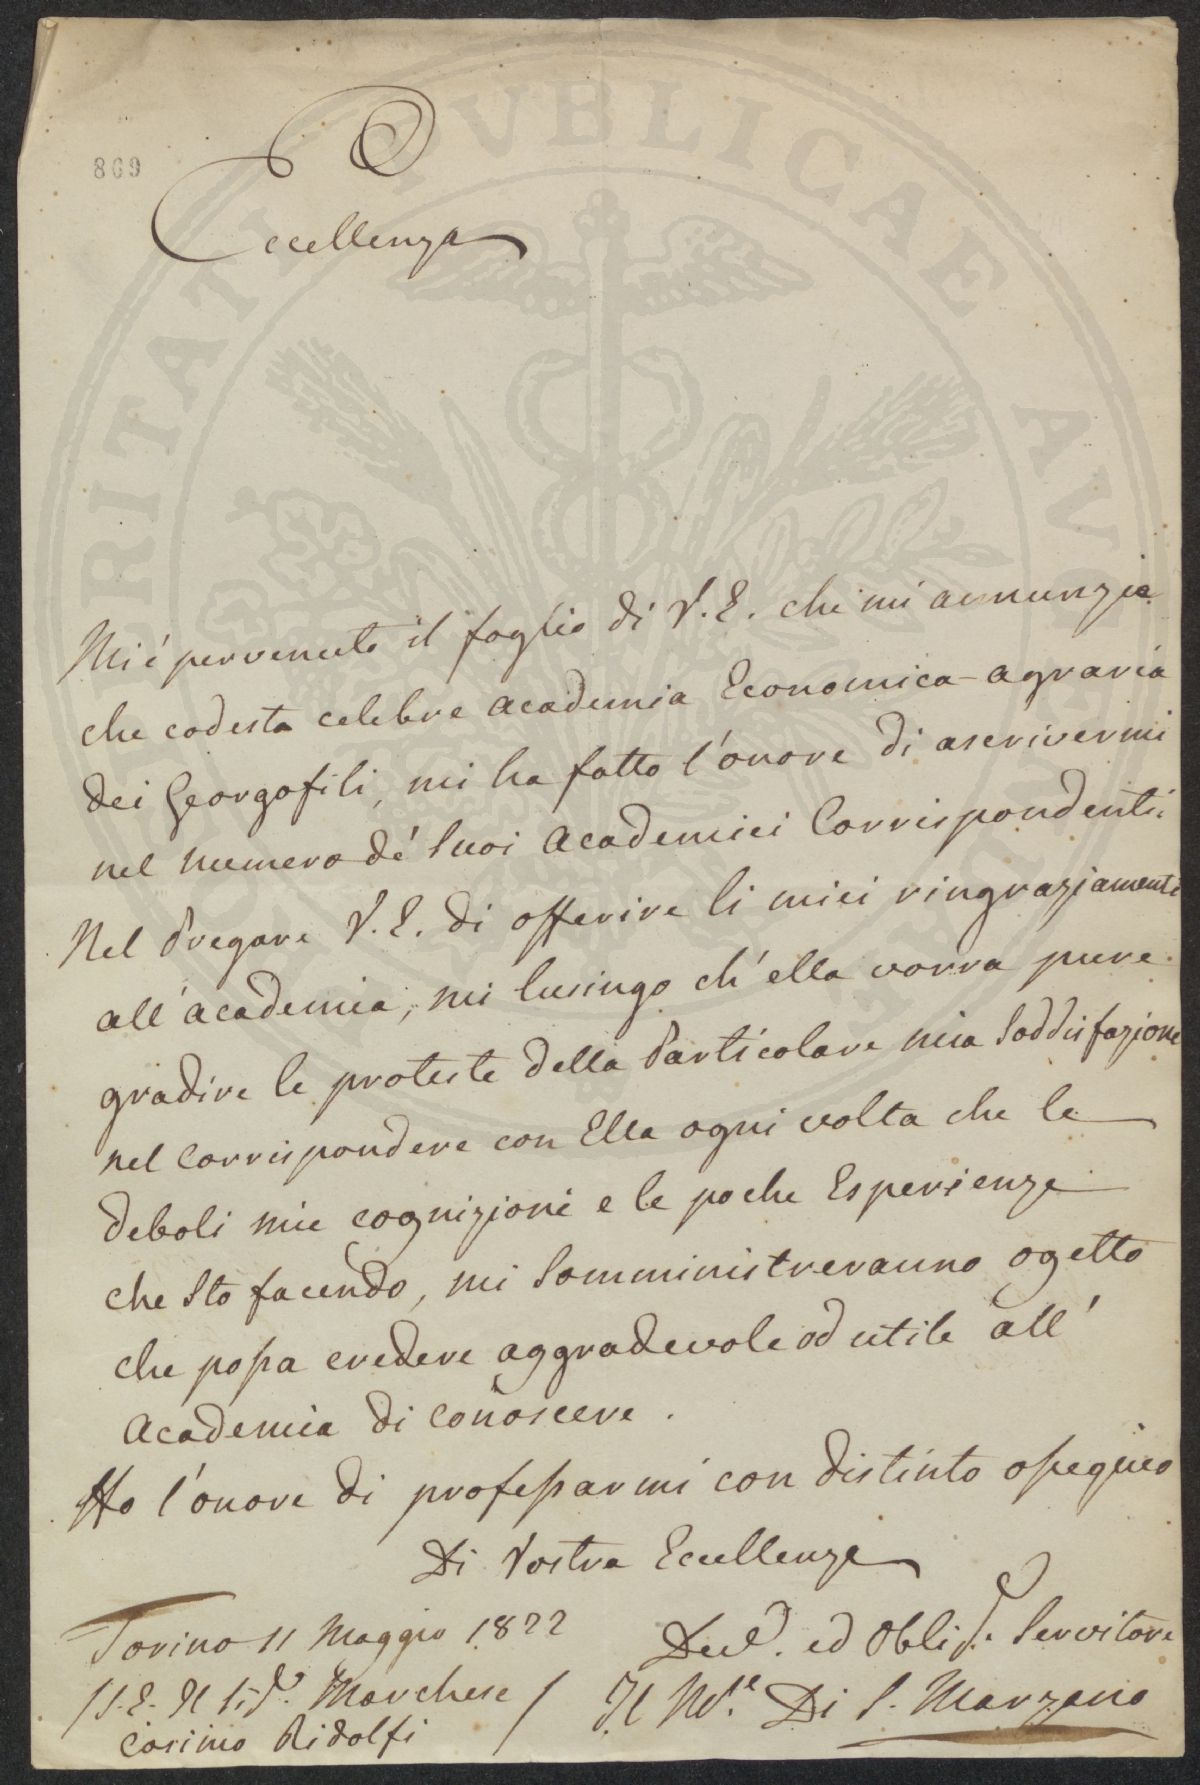 869
Eccellenza
Mi é pervenuto il foglio di V. E. che mi annunzia
che codesta celebre academia Economica-agraria
dei Georgofili, mi ha fatto l'onore di ascrivermi
nel numero dé Suoi Academici Corrispondenti.
Nel Pregare V. E. di offerire li miei ringraziamenti
all'academia, mi lusingo ch'ella vorra pure
gradire le proteste della Particolare mia Soddisfazione
nel Corrispondere con Ella ogni volta che le
deboli mie cognizioni e le poche Esperienze
che Sto facendo, mi Somministreranno ogetto
che possa credere aggradevole od utile all'
Academia di Conoscere.
Ho l'onore di professarmi con distinto ossequio
Di Vostra Eccellenza
Torino 11 Maggio 1822
ed Obli Servitore
S. E. Il Marchese
Cosimo Ridolfi
Il M.e Di S. Marzano
PUBLICAE